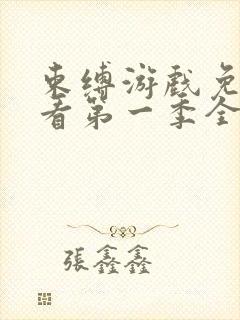 束缚游戏免
看第一季全
張鑫鑫